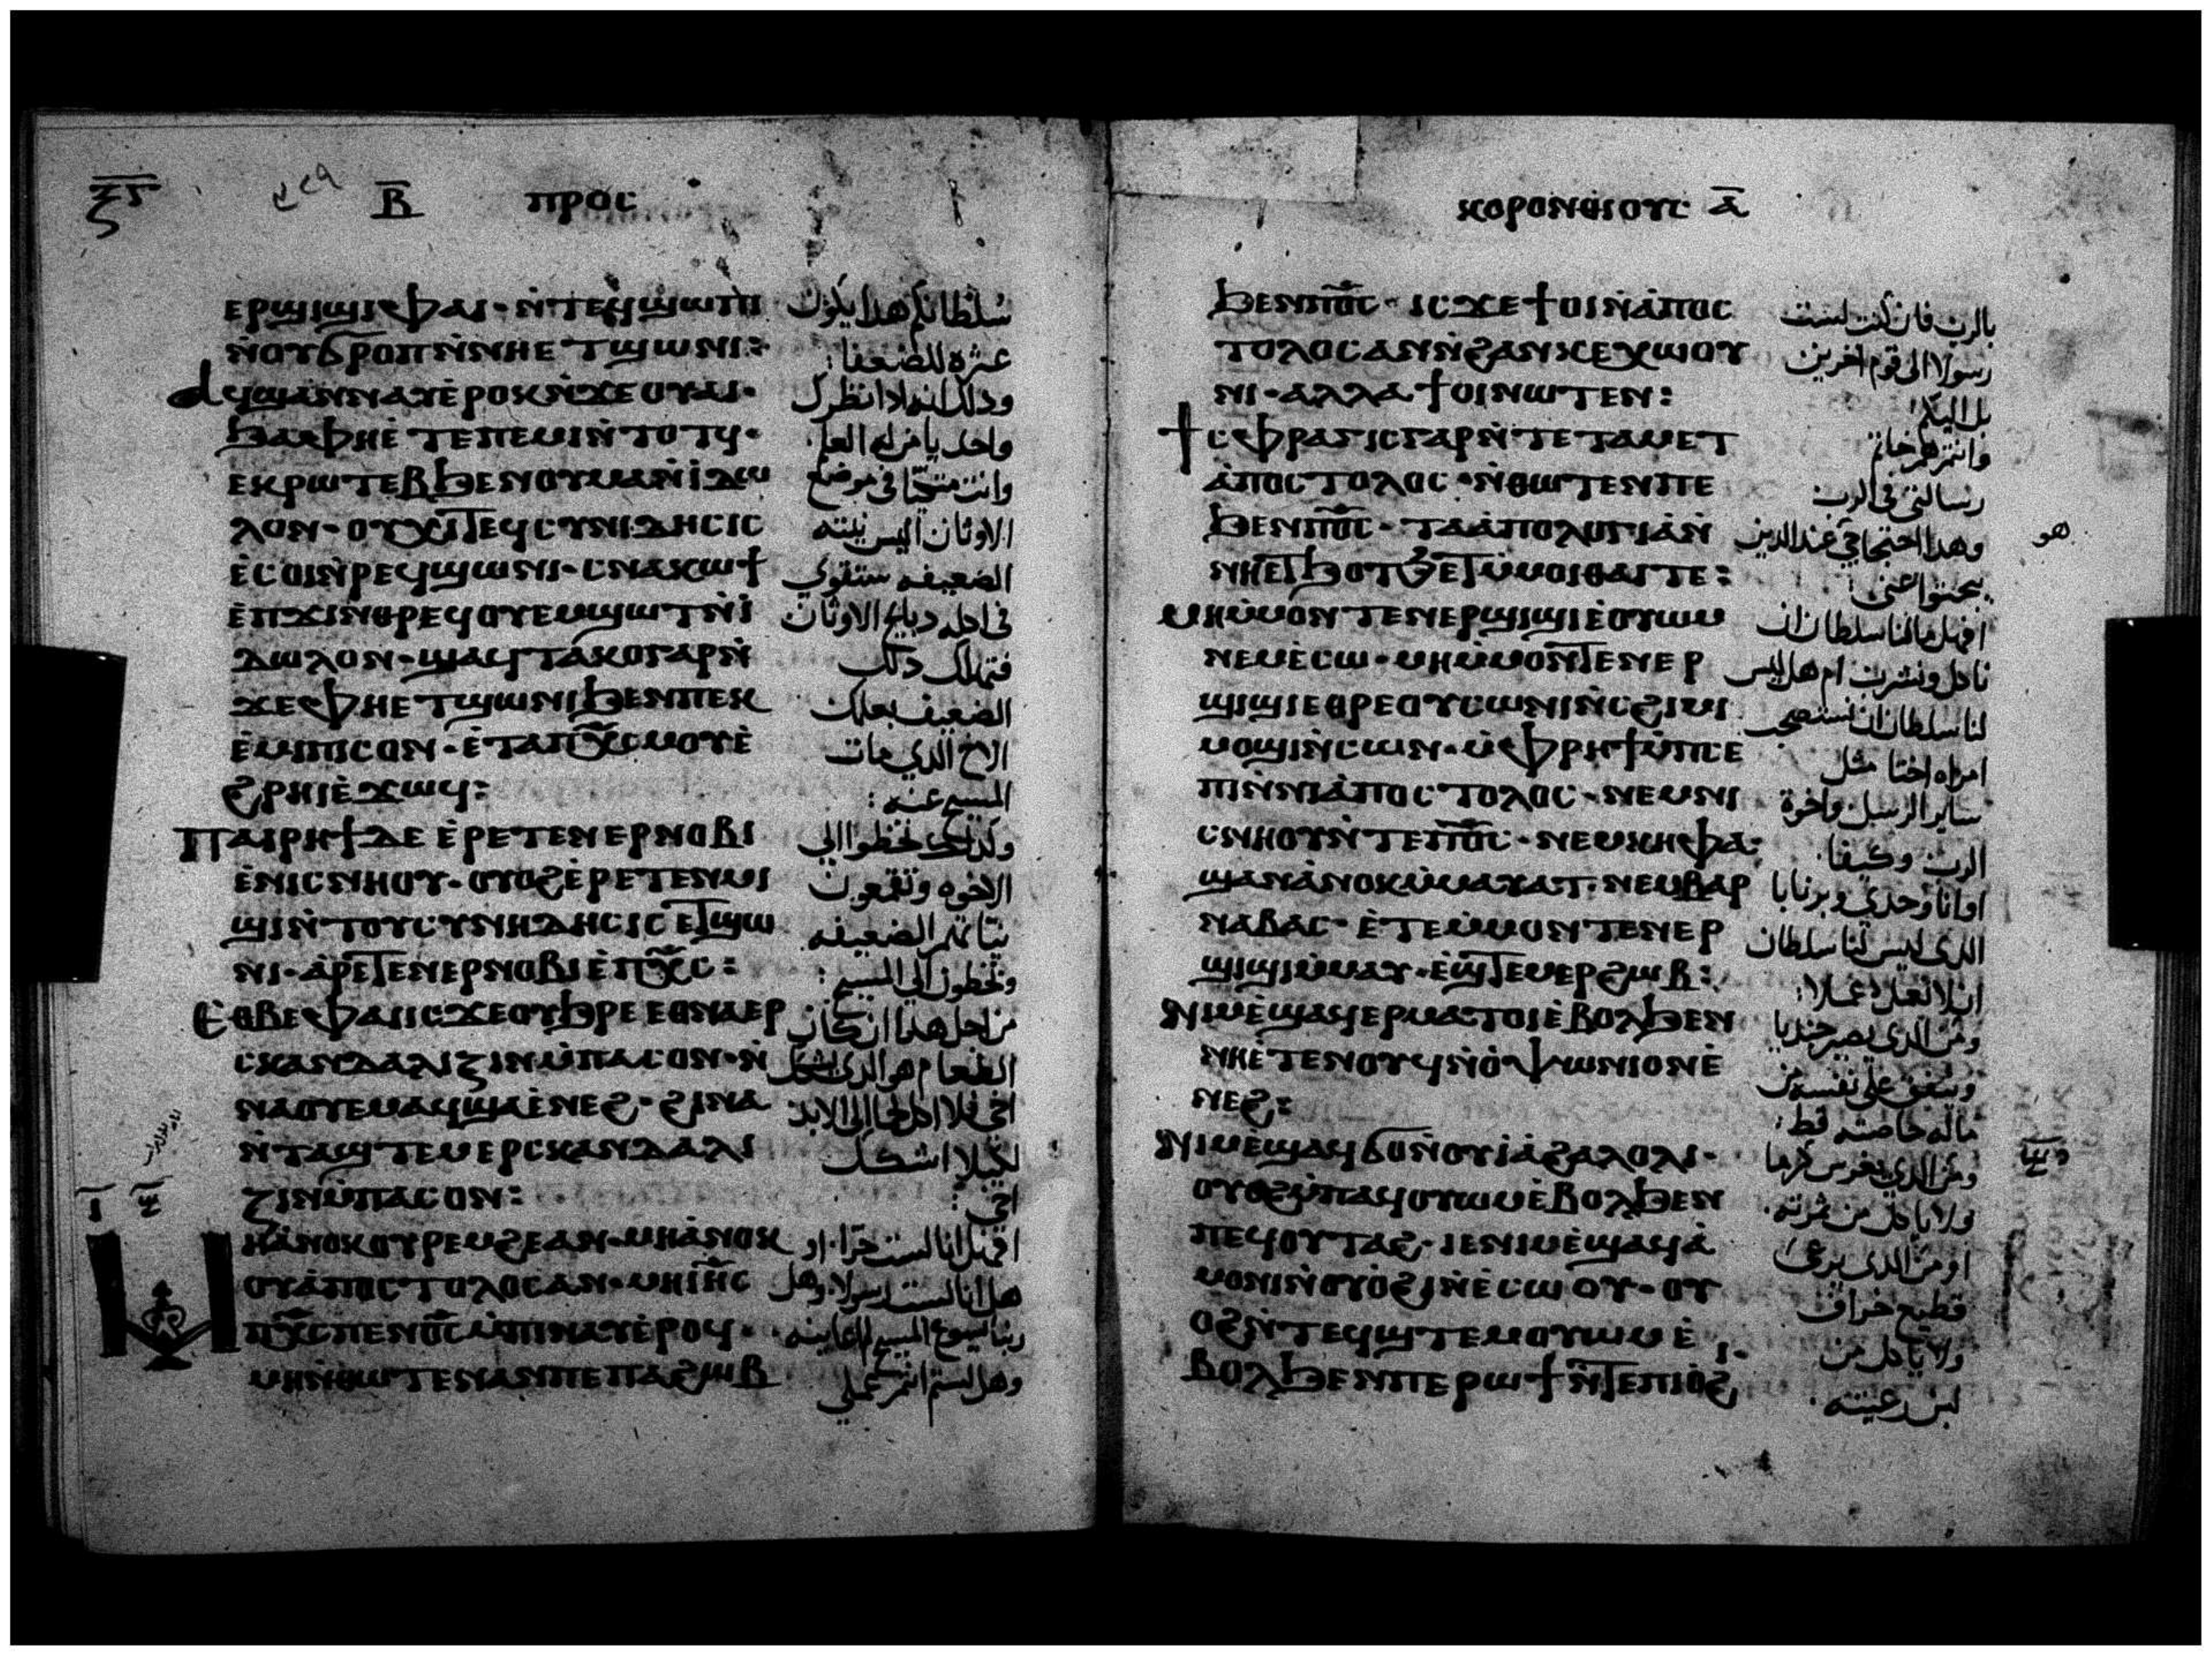 ⲝ̅ⲋ̅ Ⲃ̅ ⲡⲣⲟⲥ
ⲉⲣϣⲓϣⲓⲫⲁⲓ · ⲛ̀ⲧⲉϥϣⲱⲡⲓ
ⲛ̀ⲟⲩϭⲣⲟⲡ ⲛ̀ⲛⲏⲉⲧϣⲱⲛⲓ :
ⲁϥϣⲁⲛⲛⲁⲩⲉ̀ⲣⲟⲕ ⲛ̀ϫⲉⲟⲩⲁⲓ ·
ϧⲁⲫⲏⲉ̀ⲧⲉⲡⲉⲙⲓⲛ̀ⲧⲟⲧϥ ·
ⲉⲕⲣⲱⲧⲉⲃϧⲉⲛⲟⲩⲙⲁⲛ̀ⲓ̀ⲇⲱ
ⲗⲟⲛ · ⲟⲩⲭⲓⲧⲉϥⲥⲩⲛⲓⲇⲏⲥⲓⲥ
ⲉ̀ⲥⲟⲓⲛ̀ⲣⲉϥϣⲱⲛⲓ · ⲥⲛⲁⲕⲱϯ
ⲉ̀ⲡϫⲓⲛⲑⲣⲉϥⲟⲩⲉⲙϣⲱⲧⲛ̀ⲓ̀
ⲇⲱⲗⲟⲛ · ϣⲁϥⲧⲁⲕⲟⲅⲁⲣⲛ̀
ϫⲉⲫⲏⲉⲧϣⲱⲛⲓϧⲉⲛⲡⲉⲕ
ⲉ̀ⲙⲓⲡⲓⲥⲟⲛ · ⲉ̀ⲧⲁⲡⲭ̅ⲥ̅ⲙⲟⲩⲉ̀
ϩⲣⲏⲓⲉ̀ϫⲱϥ :
Ⲡⲁⲓⲣⲏϯⲇⲉ ⲉ̀ⲣⲉⲧⲉⲛⲉⲣⲛⲟⲃⲓ
ⲉ̀ⲛⲓⲥⲛⲏⲟⲩ · ⲟⲩⲟϩⲉ̀ⲣⲉⲧⲉⲛⲙⲓ
ϣⲓⲛ̀ⲧⲟⲩⲥⲩⲛⲏⲇⲏⲥⲓⲥ ⲉⲧϣⲱ
ⲛⲓ · ⲁ̀ⲣⲉⲧⲉⲛⲉⲣⲛⲟⲃⲓⲉ̀ⲡⲭ̅ⲥ̅ :
Ⲉⲑⲃⲉⲫⲁⲓⲓⲥϫⲉⲟⲩϧⲣⲉ ⲉⲑⲛⲁⲉⲣ
ⲥⲕⲁⲛⲇⲁⲗⲓⲍⲓⲛⲙ̀ⲡⲁⲥⲟⲛ · ⲛ̀
ⲛⲁⲟⲩⲉⲙⲁϥϣⲁⲉ̀ⲛⲉϩ · ϩⲓⲛⲁ
ⲛ̀ⲧⲁϣⲧⲉⲙⲉⲣⲥⲕⲁⲛⲇⲁⲗⲓ
ⲍⲓⲛⲙ̀ⲡⲁⲥⲟⲛ :
Ⲙⲏⲁ̀ⲛⲟⲕⲟⲩⲣⲉⲙϩⲉⲁⲛ · ⲙⲏⲁ̀ⲛⲟⲕ
ⲟⲩⲁ̀ⲡⲟⲥⲧⲟⲗⲟⲥⲁⲛ · ⲙⲏⲓ̅ⲏ̅ⲥ̅
ⲡⲭ̅ⲥ̅ⲡⲉⲛⲟ̅ⲥ̅ⲙ̀ⲡⲓⲛⲁⲩⲉ̀ⲣⲟϥ ·
ⲙⲏⲛ̀ⲑⲱⲧⲉⲛⲁⲛⲡⲉⲡⲁϩⲱⲃ
سلطانكم هدا يكون
عثرة للضعفا :
ودلك انه ادا نظرك
واحد يا من له العلم
وانت متكيا في موضع
الاوثان اليس نيته
الضعيفه ستقوي
في اكله دبايح الاوثان
فتهلك دلك
الضعيف بعلمك
الاخ الدي مات
المسيح عنه :
وكدلك تخطوا الي
الاخوه وتقمعون
نياتهم الضعيفه
وتخطون الي المسيح :
من اجل هدا ان كان
الطعام هو الدي يشكك
اخي فلا اكل لحما الي الابد
لكيلا اشكك
اخي :
افهل انا لست حرا او
هل انا لست رسولا وهل
ربنا يسوع المسيح لم اعاينه
وهل لستم انتم عملي
ⲕⲟⲣⲟⲛⲑⲓⲟⲩⲥ Ⲁ̅
ϧⲉⲛⲡⲟ̅ⲥ̅ · ⲓⲥϫⲉϯⲟⲓⲛ̀ⲁ̀ⲡⲟⲥ
ⲧⲟⲗⲟⲥⲁⲛⲛ̀ϩⲁⲛⲕⲉⲭⲱⲟⲩ
ⲛⲓ · ⲁⲗⲗⲁϯⲟⲓⲛⲱⲧⲉⲛ :
Ϯⲥⲫⲣⲁⲅⲓⲥⲅⲁⲣⲛ̀ⲧⲉⲧⲁⲙⲉⲧ
ⲁ̀ⲡⲟⲥⲧⲟⲗⲟⲥ · ⲛ̀ⲑⲱⲧⲉⲛⲡⲉ
ϧⲉⲛⲡⲟ̅ⲥ̅ · ⲧⲁⲁ̀ⲡⲟⲗⲟⲅⲓⲁ̀ⲛ̀
ⲛⲏⲉⲧϧⲟⲧϧⲉⲧⲙ̀ⲙⲟⲓⲑⲁⲓⲧⲉ :
Ⲙⲏⲙ̀ⲙⲟⲛⲧⲉⲛⲉⲣϣⲓϣⲓⲉ̀ⲟⲩⲱⲙ
ⲛⲉⲙⲉ̀ⲥⲱ · ⲙⲏⲙ̀ⲙⲟⲛⲧⲉⲛⲉⲣ
ϣⲓϣⲓⲉⲑⲣⲉⲟⲩⲥⲱⲛⲓⲛ̀ⲥϩⲓⲙⲓ
ⲙⲟϣⲓⲛ̀ⲥⲱⲛ · ⲙ̀ⲫⲣⲏϯⲙ̀ⲡⲥⲉ
ⲡⲓⲛ̀ⲛⲓⲁ̀ⲡⲟⲥⲧⲟⲗⲟⲥ · ⲛⲉⲙⲛⲓ
ⲥⲛⲏⲟⲩⲛ̀ⲧⲉⲡⲟ̅ⲥ̅ · ⲛⲉⲙⲕⲏⲫⲁ :
ϣⲁⲛⲁ̀ⲛⲟⲕⲙ̀ⲙⲁⲩⲁⲧ · ⲛⲉⲙⲃⲁⲣ
ⲛⲁⲃⲁⲥ · ⲉ̀ⲧⲉⲙ̀ⲙⲟⲛⲧⲉⲛⲉⲣ
ϣⲓϣⲓⲙ̀ⲙⲁⲩ · ⲉ̀ϣⲧⲉⲙⲉⲣϩⲱⲃ :
Ⲛⲓⲙⲉ̀ϣⲁϥⲉⲣⲙⲁⲧⲟⲓⲉ̀ⲃⲟⲗϧⲉⲛ
ⲛⲏⲉ̀ⲧⲉⲛⲟⲩϥⲛ̀ⲟ̀ⲯⲱⲛⲓⲟⲛⲉ̀
ⲛⲉϩ :
Ⲛⲓⲙⲉ̀ϣⲁϥϭⲟⲛ̀ⲟⲩⲓ̀ⲁ̀ϩⲁⲗⲟⲗⲓ ·
ⲟⲩⲟϩⲙ̀ⲡⲁϥⲟⲩⲱⲙⲉ̀ⲃⲟⲗϧⲉⲛ
ⲡⲉϥⲟⲩⲧⲁϩ · ⲓⲉⲛⲓⲙⲉ̀ϣⲁϥⲁ̀
ⲙⲟⲛⲓⲛ̀ⲟⲩⲟ̀ϩⲓⲛ̀ⲉ̀ⲥⲱⲟⲩ · ⲟⲩ
ⲟϩⲛ̀ⲧⲉϥϣⲧⲉⲙⲟⲩⲱⲙ ⲉ̀
ⲃⲟⲗϧⲉⲛⲡⲉⲣⲱϯⲛ̀ⲧⲉⲡⲓⲟ̀ϩⲓ ·
بالرب فان كنت لست
رسولا الي قوم اخرين
بل اليكم :
فانتم هم خاتم
رسالتي في الرب
وهدا احتجاجي عند الدين
يبحثوا عني :
هو
افهل ما لنا سلطان ان
ناكل ونشرب ام هل ليس
لنا سلطان ان نستصحب
امراه اختا مثل
ساير الرسل واخوة
الرب وكيفا
او انا وحدي وبرنابا
الدي ليس لنا سلطان
ان لا نعمل عملا :
ومن الدي يصير جنديا
وينفق علي نفسه من
ماله خاصته قط :
ومن الدي يغرس كرما
ولا ياكل من ثمرته .
او من الدي يرعي
قطيع خراف
ولا ياكل من
لبن رعيته .